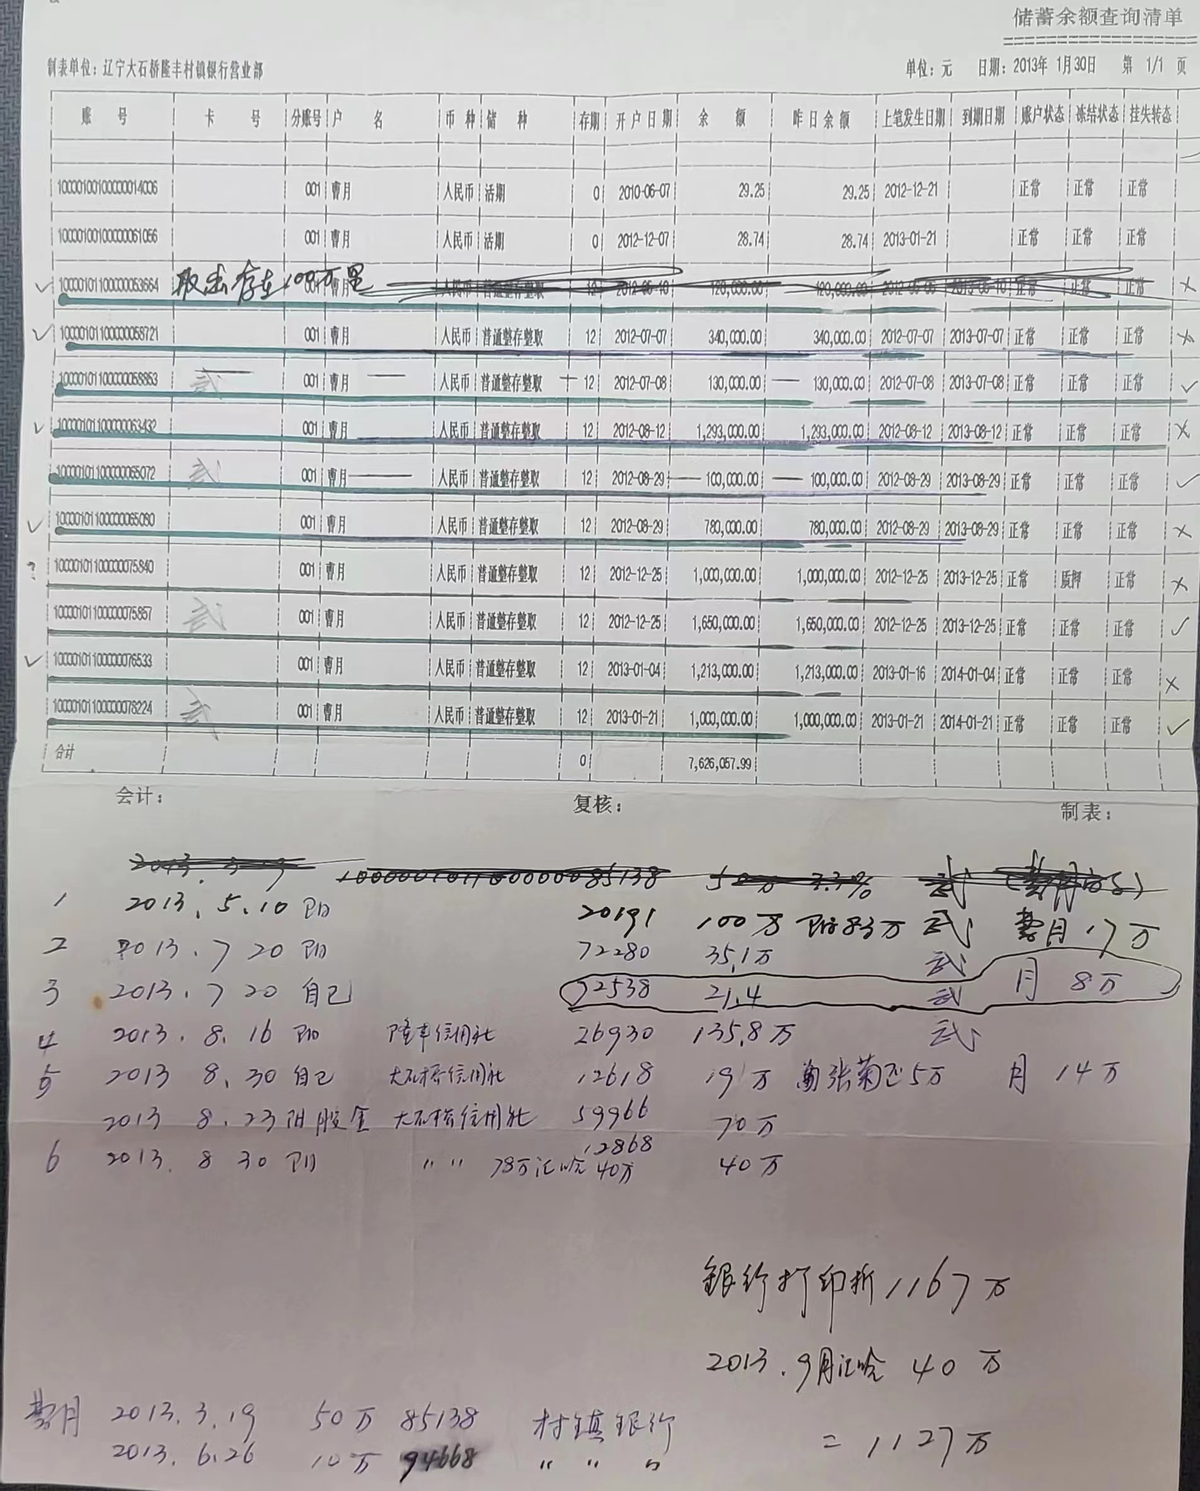 储蓄余额查询清单
制表单位：辽宁大石桥隆丰村镇银行营业部 单位：元 日期：2013年 1月30日 第 1/1 页
账 号 卡 号 分账号 户 名 币 种 储 种 存期 开户日期 余 额 昨日余额 上笔发生日期 到期日期 账户状态 冻结状态 挂失转态
1000010010000014006 001 曹月 人民币 活期 0 2010-06-07 29.25 29.25 2012-12-21 正常 正常 正常
1000010010000061056 001 曹月 人民币 活期 0 2012-12-07 28.74 28.74 2013-01-21 正常 正常 正常
✓ 1000010110000053664 取出存在100万里 曹月 人民币 普通整存整取 12 120,000.00 120,000.00 正常 正常 正常 ×
✓ 1000010110000058721 001 曹月 人民币 普通整存整取 12 2012-07-07 340,000.00 340,000.00 2012-07-07 2013-07-07 正常 正常 正常 ×
1000010110000058863 武 001 曹月 人民币 普通整存整取 12 2012-07-08 130,000.00 130,000.00 2012-07-08 2013-07-08 正常 正常 正常 ✓
✓ 1000010110000063432 001 曹月 人民币 普通整存整取 12 2012-08-12 1,293,000.00 1,293,000.00 2012-08-12 2013-08-12 正常 正常 正常 ×
1000010110000065072 武 001 曹月 人民币 普通整存整取 12 2012-08-29 100,000.00 100,000.00 2012-08-29 2013-08-29 正常 正常 正常 ✓
✓ 1000010110000065080 001 曹月 人民币 普通整存整取 12 2012-08-29 780,000.00 780,000.00 2012-08-29 2013-08-29 正常 正常 正常 ×
? 1000010110000075840 001 曹月 人民币 普通整存整取 12 2012-12-25 1,000,000.00 1,000,000.00 2012-12-25 2013-12-25 正常 质押 正常 ×
1000010110000075857 武 001 曹月 人民币 普通整存整取 12 2012-12-25 1,650,000.00 1,650,000.00 2012-12-25 2013-12-25 正常 正常 正常 ✓
✓ 1000010110000076533 001 曹月 人民币 普通整存整取 12 2013-01-04 1,213,000.00 1,213,000.00 2013-01-16 2014-01-04 正常 正常 正常 ×
1000010110000078224 武 001 曹月 人民币 普通整存整取 12 2013-01-21 1,000,000.00 1,000,000.00 2013-01-21 2014-01-21 正常 正常 正常 ✓
合计 0 7,626,057.99
会计： 复核： 制表：
2013. 3.19 1000001011000000085138 50万 3.3% 武
1 2013.5.10 阳 20191 100万 阳83万 武 曹月17万
2 2013.7 20 阳 72280 35.1万 武
3 2013.7 20 自己 72538 21.4 武 月 8万
4 2013.8.16 阳 隆丰信用社 26930 135.8万 武
5 2013 8.30 自己 大石桥信用社 12618 19万 张菊 5万 月 14万
2013 8.23 阳股金 大石桥信用社 59966 70万
6 2013.8 30 阳 〃 〃 78万汇哈40万 12868 40万
银行打印折1167万
2013.9月汇哈 40万
曹月 2013.3.19 50万 85138 村镇银行
= 1127万
2013.6.26 10万 94668 〃 〃 〃